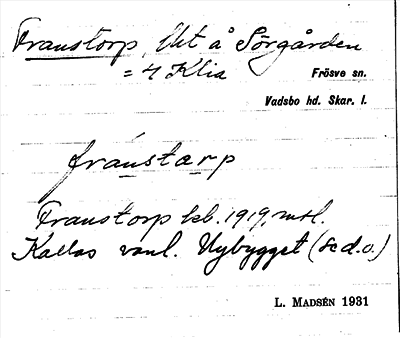 Franstorp, Ut å Sörgården
= 4 Klia
Frösve sn.
Vadsbo hd. Skar. l.
fránstarp
Franstorp kb. 1919, msl.
Kallas vanl. Nybygget (se d.o.)
L. MADSÉN 1931